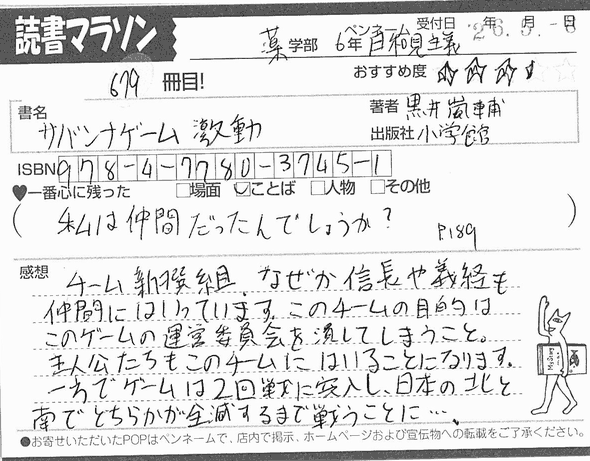 読書マラソン
受付日 年 月 日
26.9.-8
薬 学部 6年 ペンネーム 自給見主義
おすすめ度 ☆☆☆
679 冊目!
書名
サバンナゲーム 激動
著者 黒井嵐輔
出版社 小学館
ISBN 978-4-7780-3745-1
♥一番心に残った □場面 ☑ことば □人物 □その他
( 私は仲間だったんでしょうか? P.189 )
感想
チーム新撰組、なぜか信長や義経も
仲間にはいっています。このチームの目的は
このゲームの運営委員会を潰してしまうこと。
主人公たちもこのチームにはいることになります。
一方でゲームは2回戦に突入し、日本の北と
南でどちらかが全滅するまで戦うことに…。
●お寄せいただいたPOPはペンネームで、店内で掲示、ホームページおよび宣伝物への転載をご了承ください。